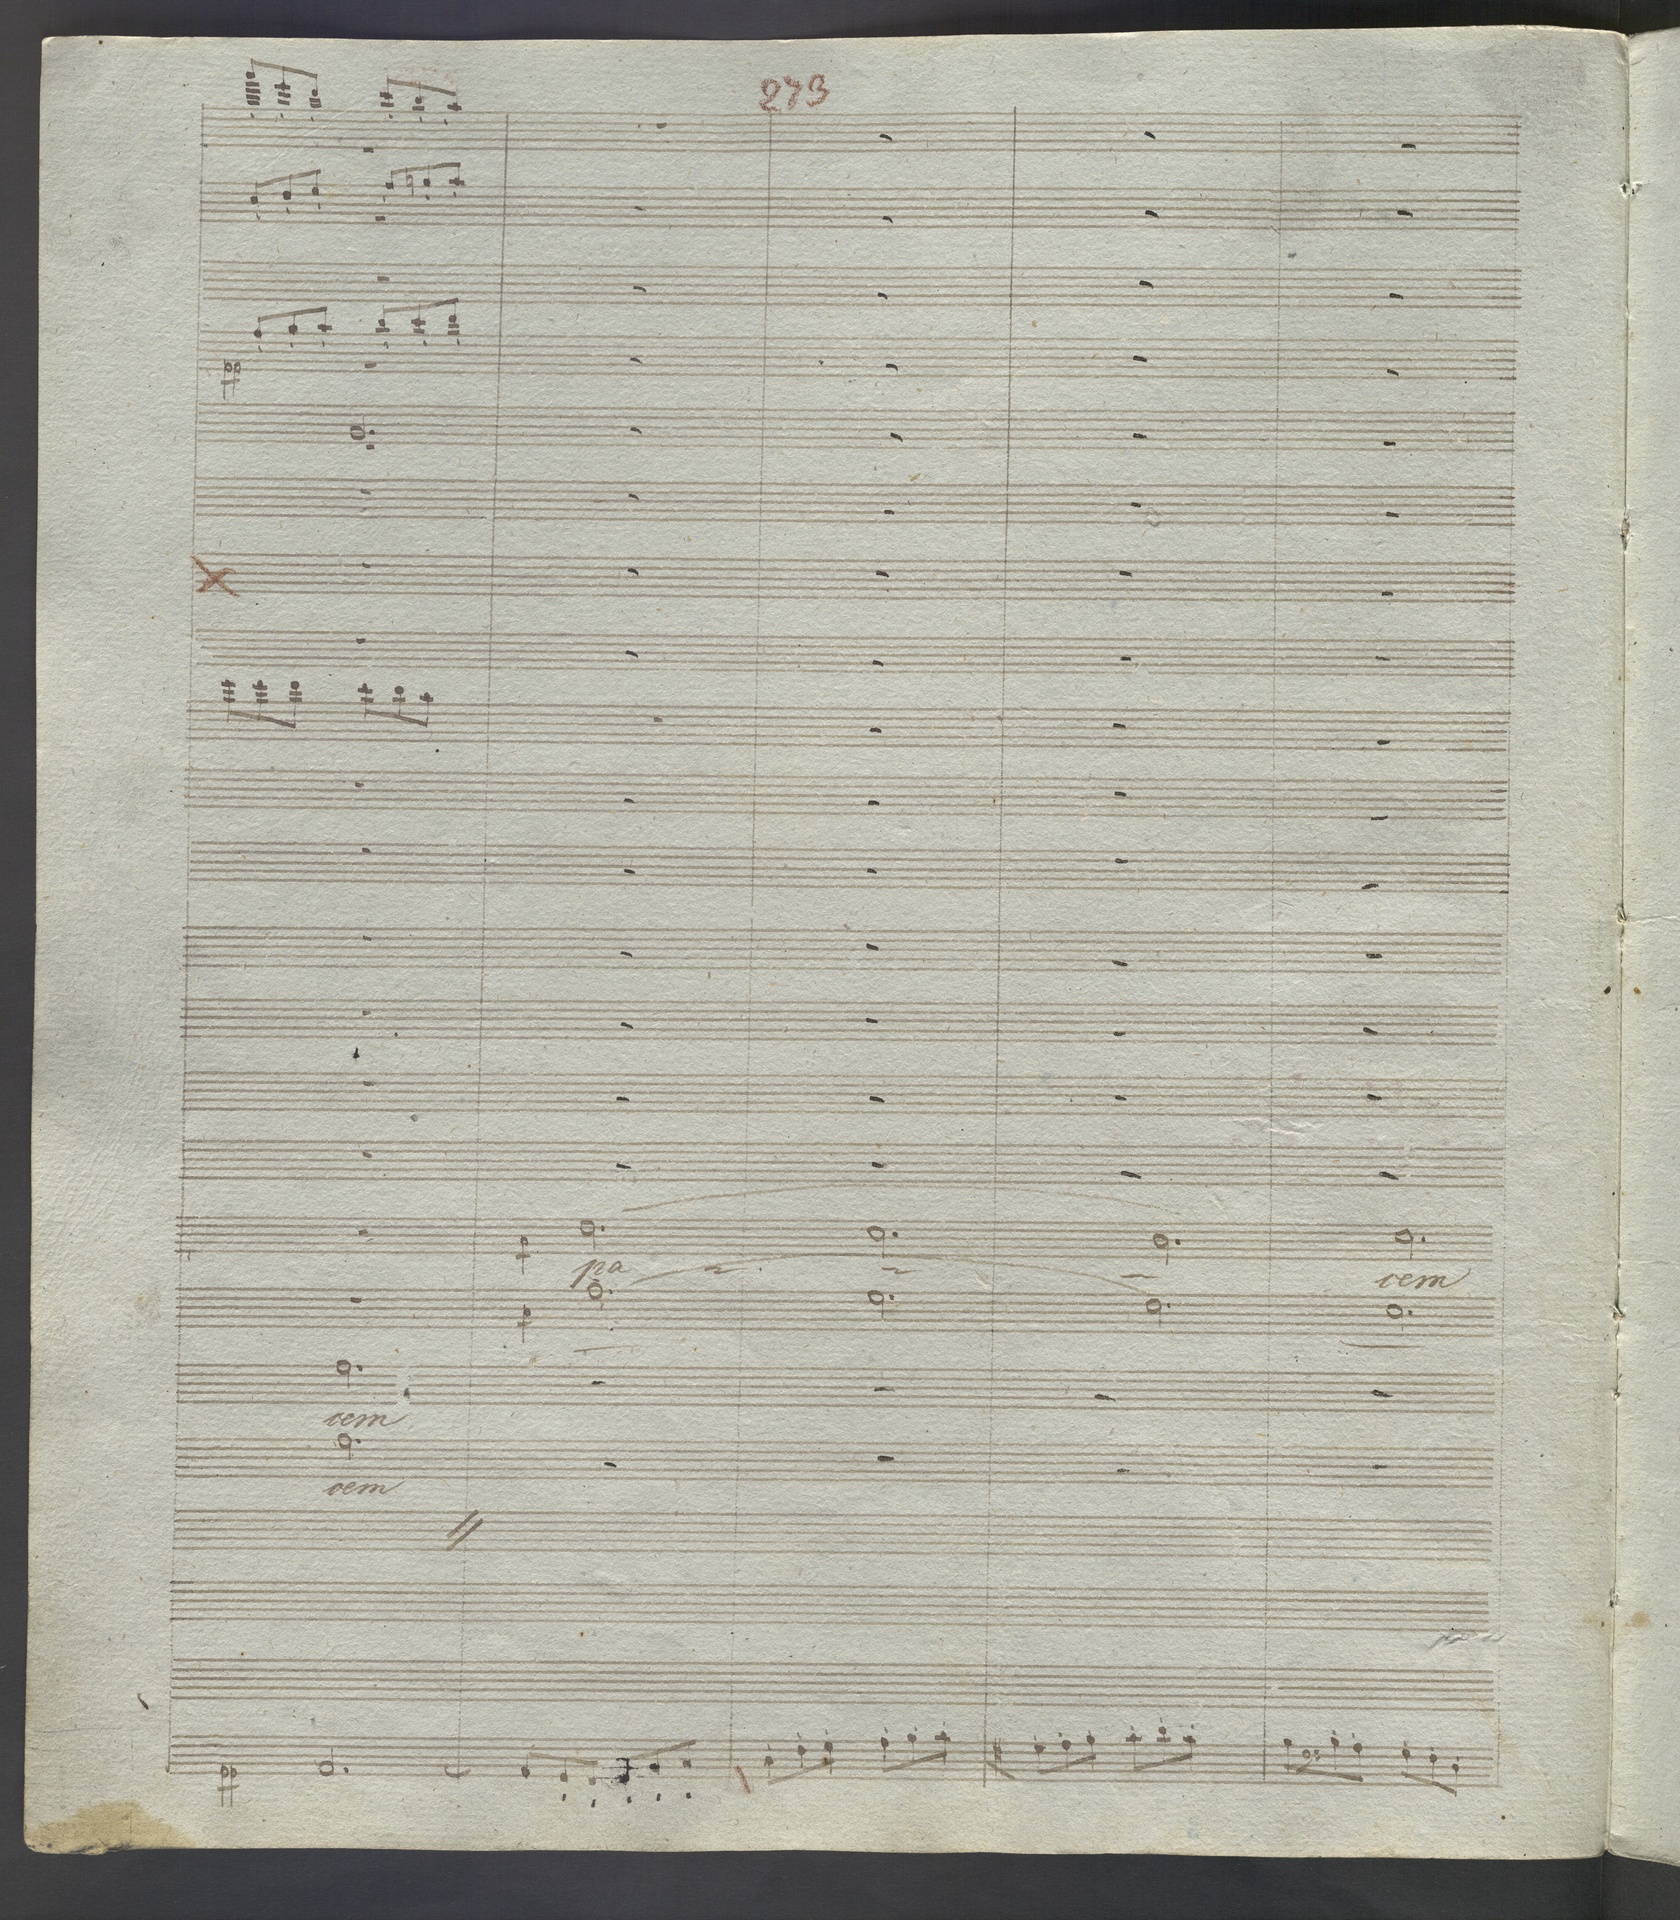 273
pp
p
pa
cem
p
cem
cem
pp